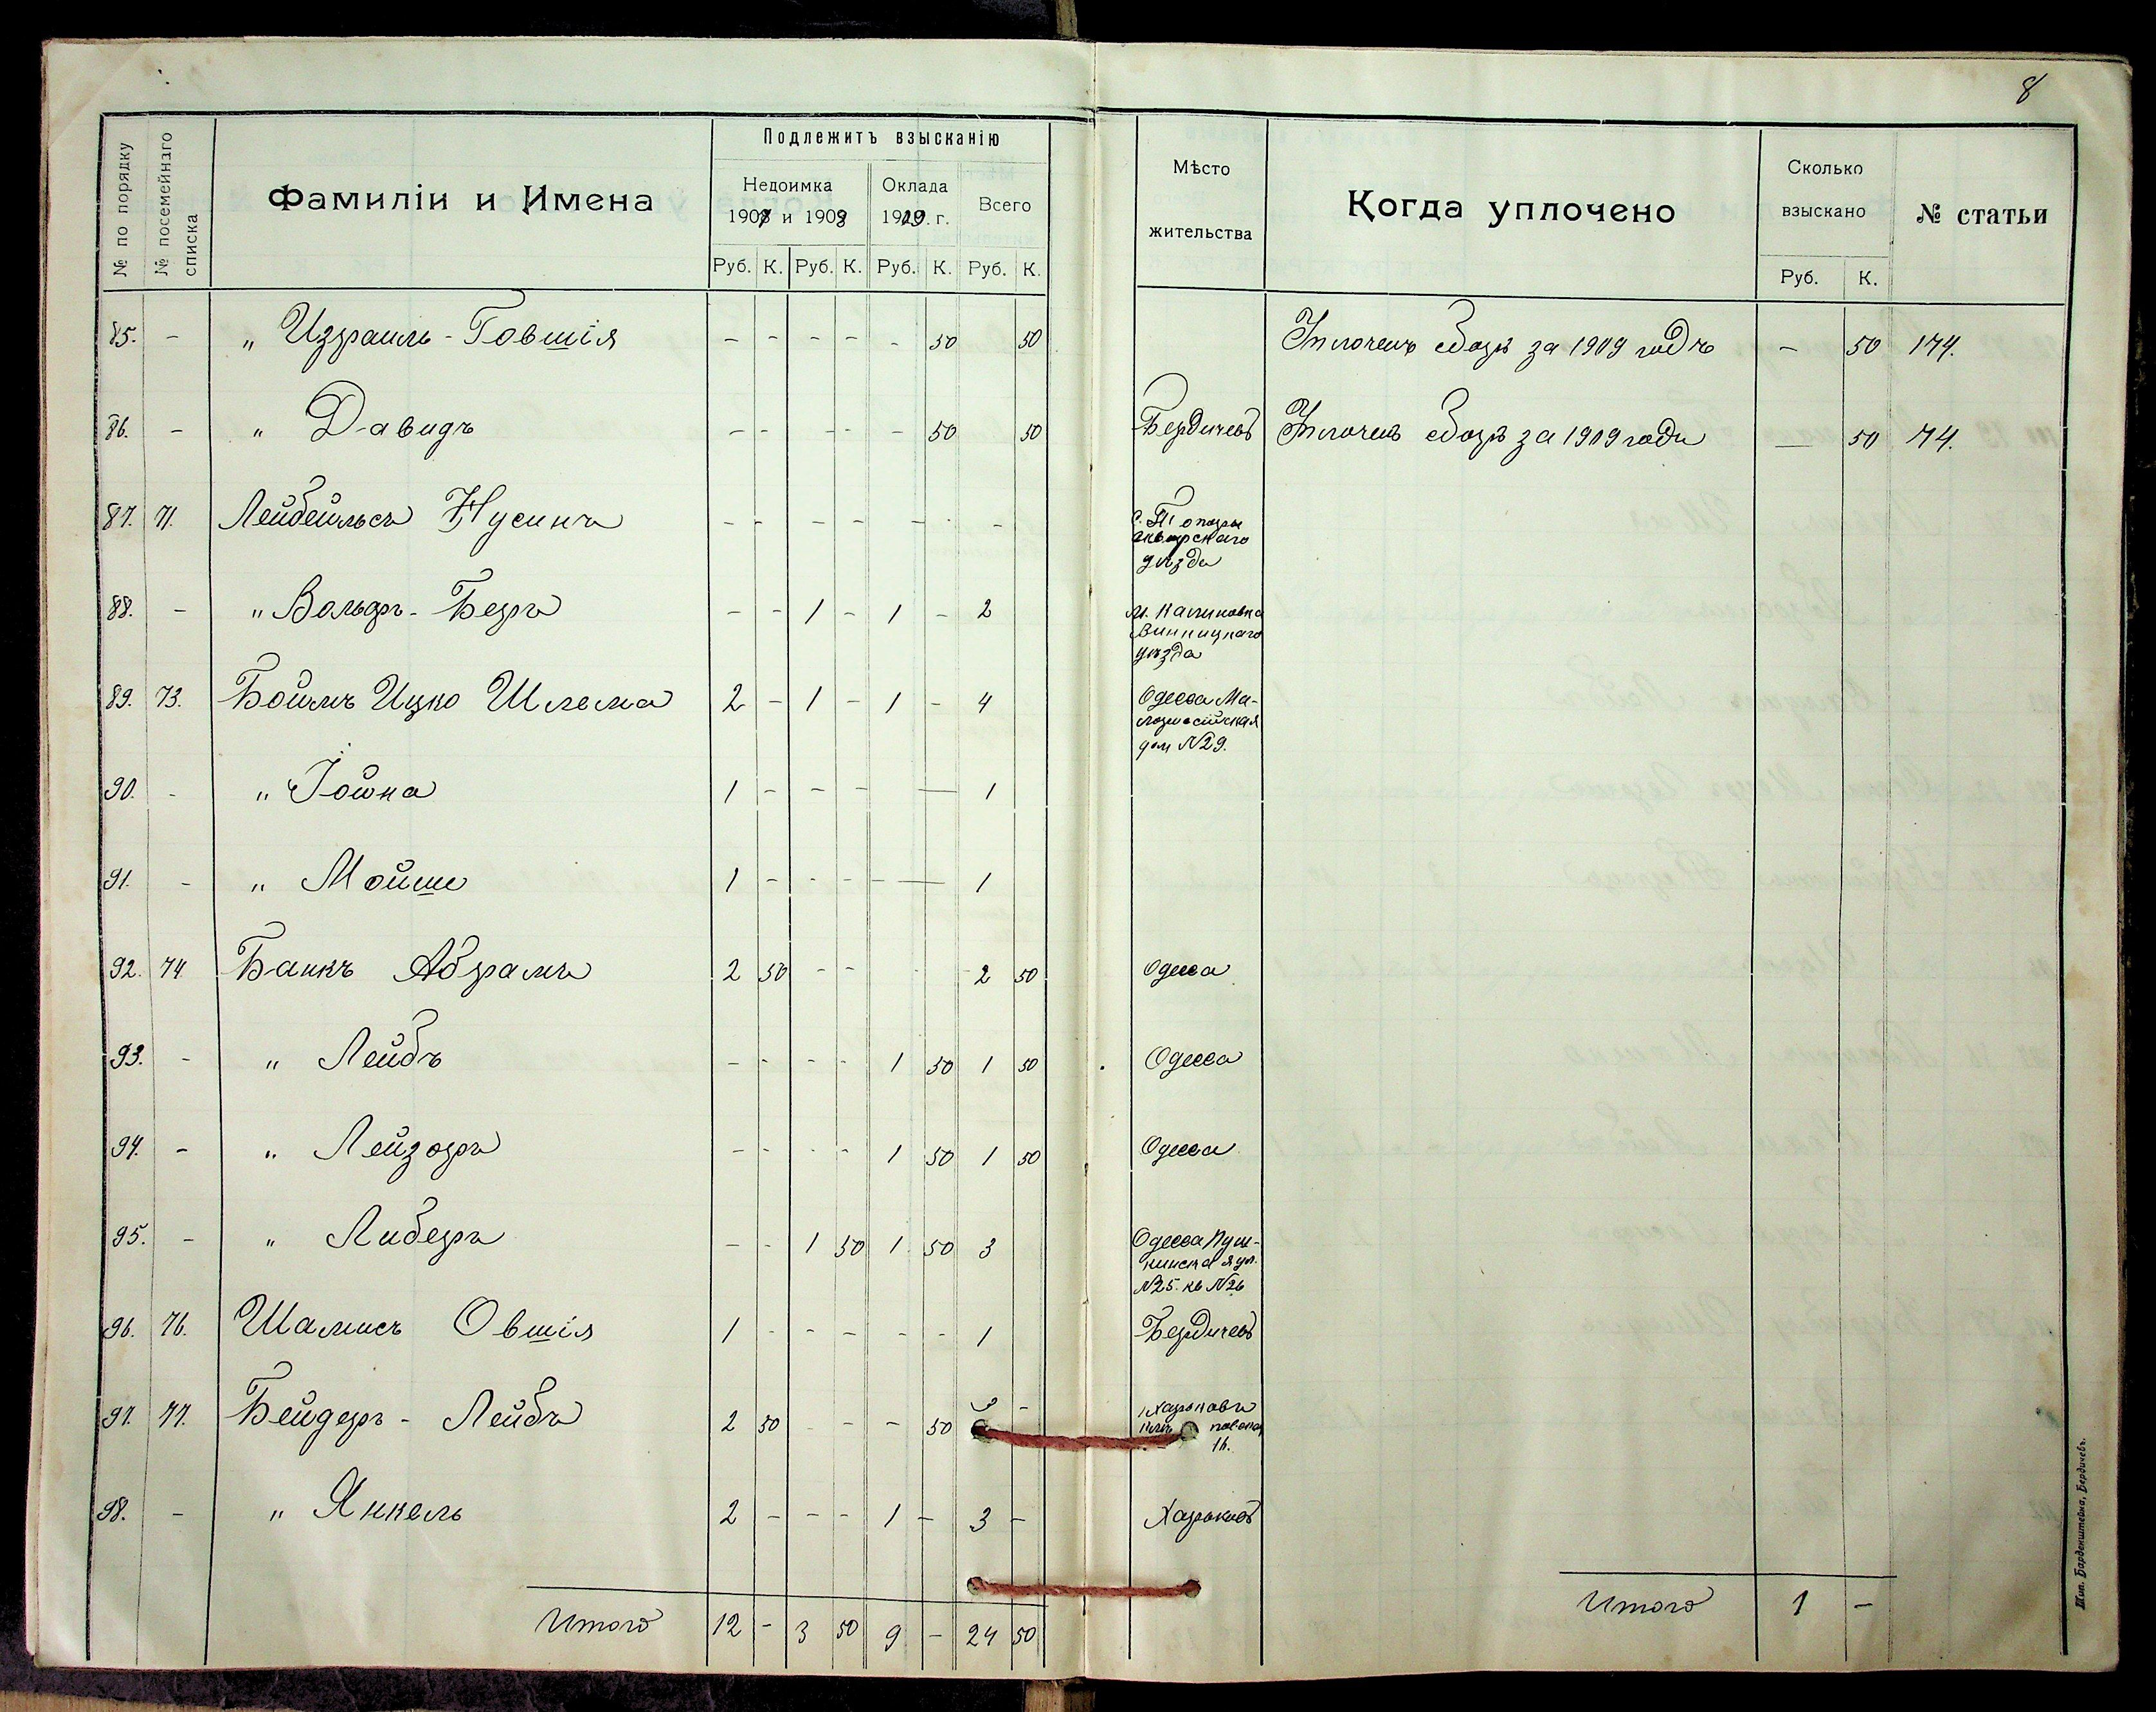 8
№ по порядку
№ посемейнаго списка
Фамиліи и Имена
Подлежитъ взысканію
Недоимка
1907 и 1908
Оклада
1909 г.
Всего
Руб. К. Руб. К. Руб. К. Руб. К.
Мѣсто
жительства
Когда уплочено
Сколько
взыскано
Руб. К.
№ статьи
85. - " Израиль-Говшія - - - - - 50 50 Уплоченъ сборъ за 1909 годъ - 50 174.
86. - " Давидъ - - - - - 50 50 Бердичевъ Уплоченъ сборъ за 1909 годъ — 50 74.
87. 71. Лейбельсъ Нусинъ - - - - - - - с. Топоры
сквирскаго
уѣзда
88. - " Вольфъ-Беръ - - 1 - 1 - 2 м. Калиновка
Винницкаго
уѣзда
89. 73. Боймъ Ицко Шлема 2 - 1 - 1 - 4 Одесса Ма-
лороссійская
дом №29.
90. - " Іойна 1 - - - — 1
91. - " Мойше 1 - - - - — 1
92. 74 Банкъ Абрамъ 2 50 - - - 2 50 Одесса
93. - " Лейбъ - - - - 1 50 1 50 Одесса
94. - " Лейзоръ - - - - 1 50 1 50 Одесса
95. - " Либеръ - - 1 50 1 50 3 Одесса Пуш-
кинская ул.
№25. кв №26
96. 76. Шамисъ Овшія 1 - - - - - 1 Бердичевъ
97. 77. Бейдеръ - Лейбъ 2 50 - - 50 - Харьковъ
16.
98. - " Янкель 2 - - - 1 - 3 - Харьковъ
Итого 12 - 3 50 9 - 24 50
Итого 1 -
Тип. Барденштейна, Бердичевъ.